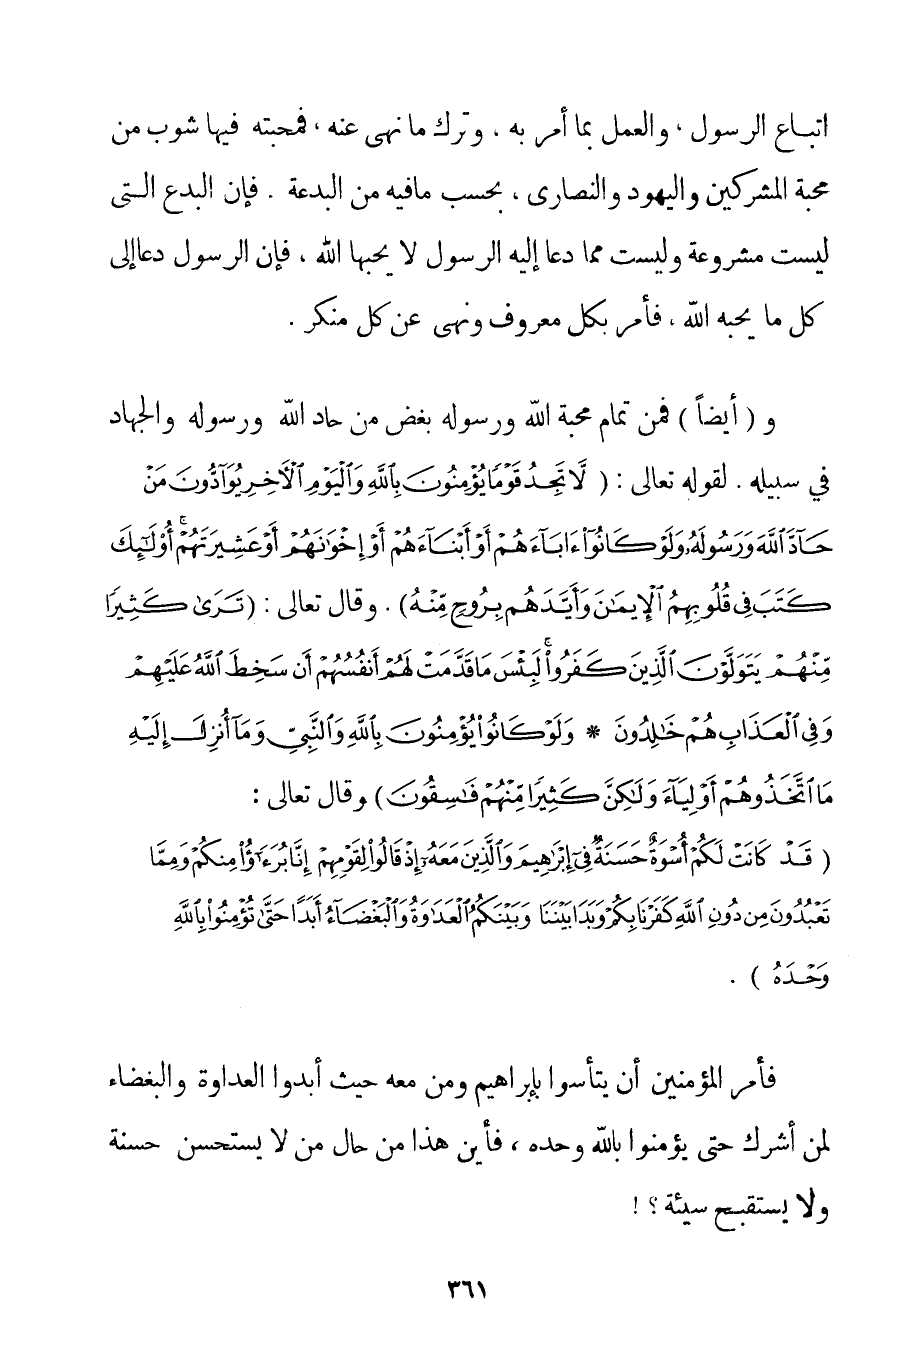 اتباع الرسول ، والعمل بما أمر به ، وترك ما نهى عنه ، فمحبته فيها شوب من
محبة المشركين واليهود والنصارى ، بحسب مافيه من البدعة . فإن البدع التى
ليست مشروعة وليست مما دعا إليه الرسول لا يحبها الله ، فإن الرسول دعا إلى
كل ما يحبه الله ، فأمر بكل معروف ونهى عن كل منكر .
و ( أيضاً ) فمن تمام محبة الله ورسوله بغض من حاد الله ورسوله والجهاد
في سبيله . لقوله تعالى : ( لَّا تَجِدُ قَوْمًا يُؤْمِنُونَ بِٱللَّهِ وَٱلْيَوْمِ ٱلْأَخِرِ يُوَآدُّونَ مَنْ
حَآدَّ ٱللَّهَ وَرَسُولَهُۥ وَلَوْ كَانُوٓا۟ ءَابَآءَهُمْ أَوْ أَبْنَآءَهُمْ أَوْ إِخْوَٰنَهُمْ أَوْ عَشِيرَتَهُمْ ۚ أُو۟لَٰٓئِكَ
كَتَبَ فِى قُلُوبِهِمُ ٱلْإِيمَٰنَ وَأَيَّدَهُم بِرُوحٍ مِّنْهُ) . وقال تعالى : (تَرَىٰ كَثِيرًا
مِّنْهُمْ يَتَوَلَّوْنَ ٱلَّذِينَ كَفَرُوا۟ ۚ لَبِئْسَ مَا قَدَّمَتْ لَهُمْ أَنفُسُهُمْ أَن سَخِطَ ٱللَّهُ عَلَيْهِمْ
وَفِى ٱلْعَذَابِ هُمْ خَٰلِدُونَ * وَلَوْ كَانُوا۟ يُؤْمِنُونَ بِٱللَّهِ وَٱلنَّبِىِّ وَمَآ أُنزِلَ إِلَيْهِ
مَا ٱتَّخَذُوهُمْ أَوْلِيَآءَ وَلَٰكِنَّ كَثِيرًا مِّنْهُمْ فَٰسِقُونَ ) وقال تعالى :
( قَدْ كَانَتْ لَكُمْ أُسْوَةٌ حَسَنَةٌ فِىٓ إِبْرَٰهِيمَ وَٱلَّذِينَ مَعَهُۥٓ إِذْ قَالُوا۟ لِقَوْمِهِمْ إِنَّا بُرَءَٰٓؤُا۟ مِنكُمْ وَمِمَّا
تَعْبُدُونَ مِن دُونِ ٱللَّهِ كَفَرْنَا بِكُمْ وَبَدَا بَيْنَنَا وَبَيْنَكُمُ ٱلْعَدَٰوَةُ وَٱلْبَغْضَآءُ أَبَدًا حَتَّىٰ تُؤْمِنُوا۟ بِٱللَّهِ
وَحْدَهُ ) .
فأمر المؤمنين أن يتأسوا بإبراهيم ومن معه حيث أبدوا العداوة والبغضاء
لمن أشرك حتى يؤمنوا بالله وحده ، فأين هذا من حال من لا يستحسن حسنة
ولا يستقبح سيئة ؟ !
٣٦١